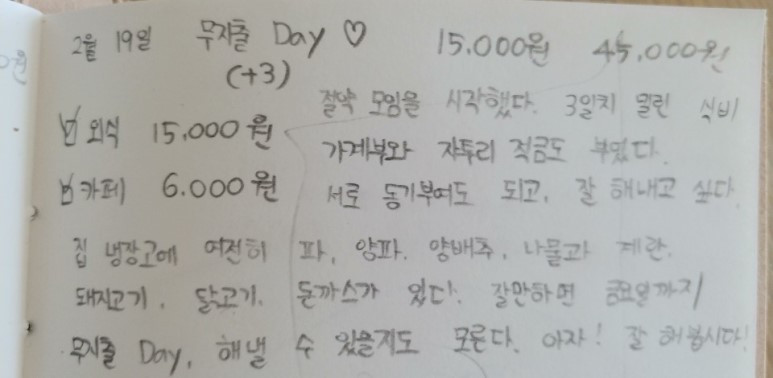 2월 19일 무지출 Day ♡ 15.000원 45,000원
(+3)
절약 모임을 시작했다. 3일치 밀린 식비
☑ 외식 15,000원
가계부와 자투리 적금도 부었다.
☑ 카페 6.000원 서로 동기부여도 되고, 잘 해내고 싶다.
집 냉장고에 여전히 파, 양파, 양배추, 나물과 계란,
돼지고기, 닭고기, 돈까스가 있다. 잘만하면 금요일까지
무지출 Day, 해낼 수 있을지도 모른다. 아자! 잘 해봅시다!